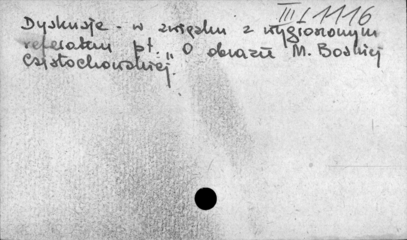 III L 1116
Dyskusje - w związku z wygłoszonym
referatem pt. „O obrazie M. Boskiej
Częstochowskiej".